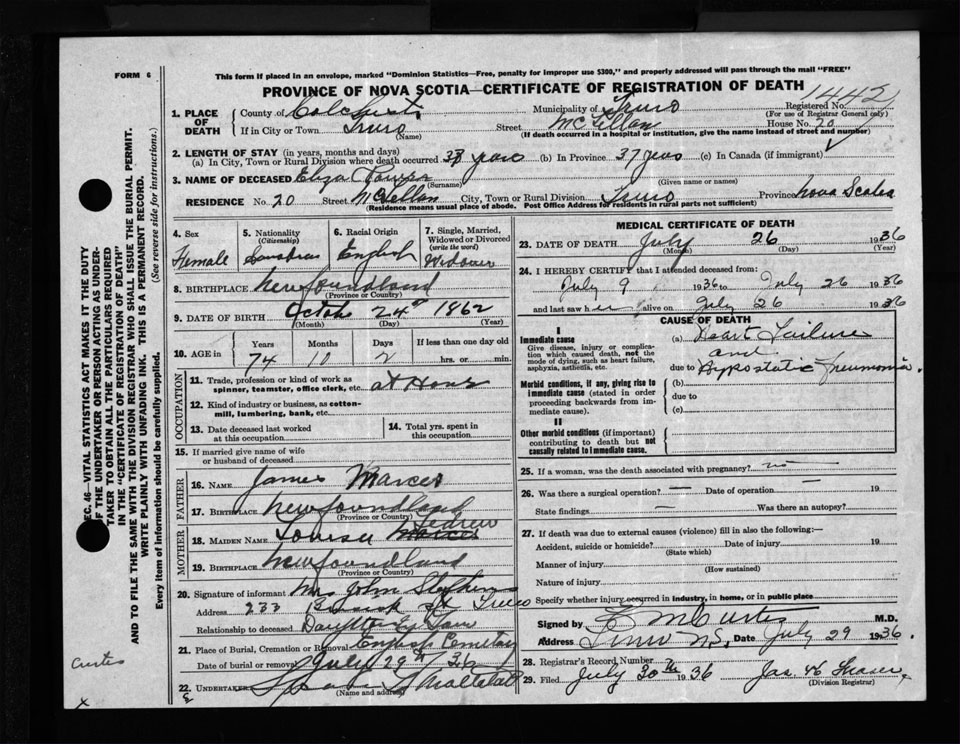 FORM 6
This form if placed in an envelope, marked "Dominion Statistics—Free, penalty for improper use $300," and properly addressed will pass through the mail "FREE"
PROVINCE OF NOVA SCOTIA—CERTIFICATE OF REGISTRATION OF DEATH
1442
1. PLACE OF DEATH
County of Colchester Municipality of Truro Registered No.
(For use of Registrar General only)
If in City or Town Truro Street McClellan House No. 20
(Name) (If death occurred in a hospital or institution, give the name instead of street and number)
2. LENGTH OF STAY (in years, months and days)
(a) In City, Town or Rural Division where death occurred 37 years (b) In Province 37 years (c) In Canada (if immigrant)
3. NAME OF DECEASED Eliza
(Surname) (Given name or names)
RESIDENCE No. 20 Street McClellan City, Town or Rural Division Truro Province Nova Scotia
(Residence means usual place of abode. Post Office Address for residents in rural parts not sufficient)
4. Sex
Female
5. Nationality
(Citizenship)
Canadian
6. Racial Origin
English
7. Single, Married, Widowed or Divorced
(write the word)
Widower
8. BIRTHPLACE Newfoundland
(Province or Country)
9. DATE OF BIRTH Octob 24th 1862
(Month) (Day) (Year)
10. AGE in Years Months Days If less than one day old
74 10 2 hrs. or min.
OCCUPATION
11. Trade, profession or kind of work as spinner, teamster, office clerk, etc. at Home
12. Kind of industry or business, as cotton-mill, lumbering, bank, etc.
13. Date deceased last worked at this occupation
14. Total yrs. spent in this occupation
15. If married give name of wife or husband of deceased
FATHER
16. NAME James
17. BIRTHPLACE Newfoundland
(Province or Country)
MOTHER
18. MAIDEN NAME Louisa
19. BIRTHPLACE Newfoundland
(Province or Country)
20. Signature of informant Mrs John Stephens
Address 233 St Truro
Relationship to deceased Daughter in Law
21. Place of Burial, Cremation or Removal Cemetery
Date of burial or removal July 29th/36
22. UNDERTAKER
(Name and address)
MEDICAL CERTIFICATE OF DEATH
23. DATE OF DEATH July 26 1936
(Month) (Day) (Year)
24. I HEREBY CERTIFY that I attended deceased from:
July 9 1936 to July 26 1936
and last saw her alive on July 26 1936
CAUSE OF DEATH
I
Immediate cause
Give disease, injury or complication which caused death, not the mode of dying, such as heart failure, asphyxia, asthenia, etc.
(a) Heart Failure
and
due to Hypostatic Pneumonia.
Morbid conditions, if any, giving rise to immediate cause (stated in order proceeding backwards from immediate cause).
(b)
due to
(c)
II
Other morbid conditions (if important) contributing to death but not causally related to immediate cause.
25. If a woman, was the death associated with pregnancy? no
26. Was there a surgical operation? — Date of operation — 19
State findings — Was there an autopsy?
27. If death was due to external causes (violence) fill in also the following:—
Accident, suicide or homicide? Date of injury 19
(State which)
Manner of injury
(How sustained)
Nature of injury
Specify whether injury occurred in industry, in home, or in public place
Signed by E M Curtis M.D.
Address Truro N.S. Date July 29 1936.
28. Registrar's Record Number
29. Filed July 30th 1936 Jas. H Fraser
(Division Registrar)
SEC. 46—VITAL STATISTICS ACT MAKES IT THE DUTY
OF THE UNDERTAKER OR PERSON ACTING AS UNDERTAKER TO OBTAIN ALL THE PARTICULARS REQUIRED
IN THE "CERTIFICATE OF REGISTRATION OF DEATH"
AND TO FILE THE SAME WITH THE DIVISION REGISTRAR WHO SHALL ISSUE THE BURIAL PERMIT.
WRITE PLAINLY WITH UNFADING INK. THIS IS A PERMANENT RECORD.
Every item of information should be carefully supplied. (See reverse side for instructions.)
Curtis
x